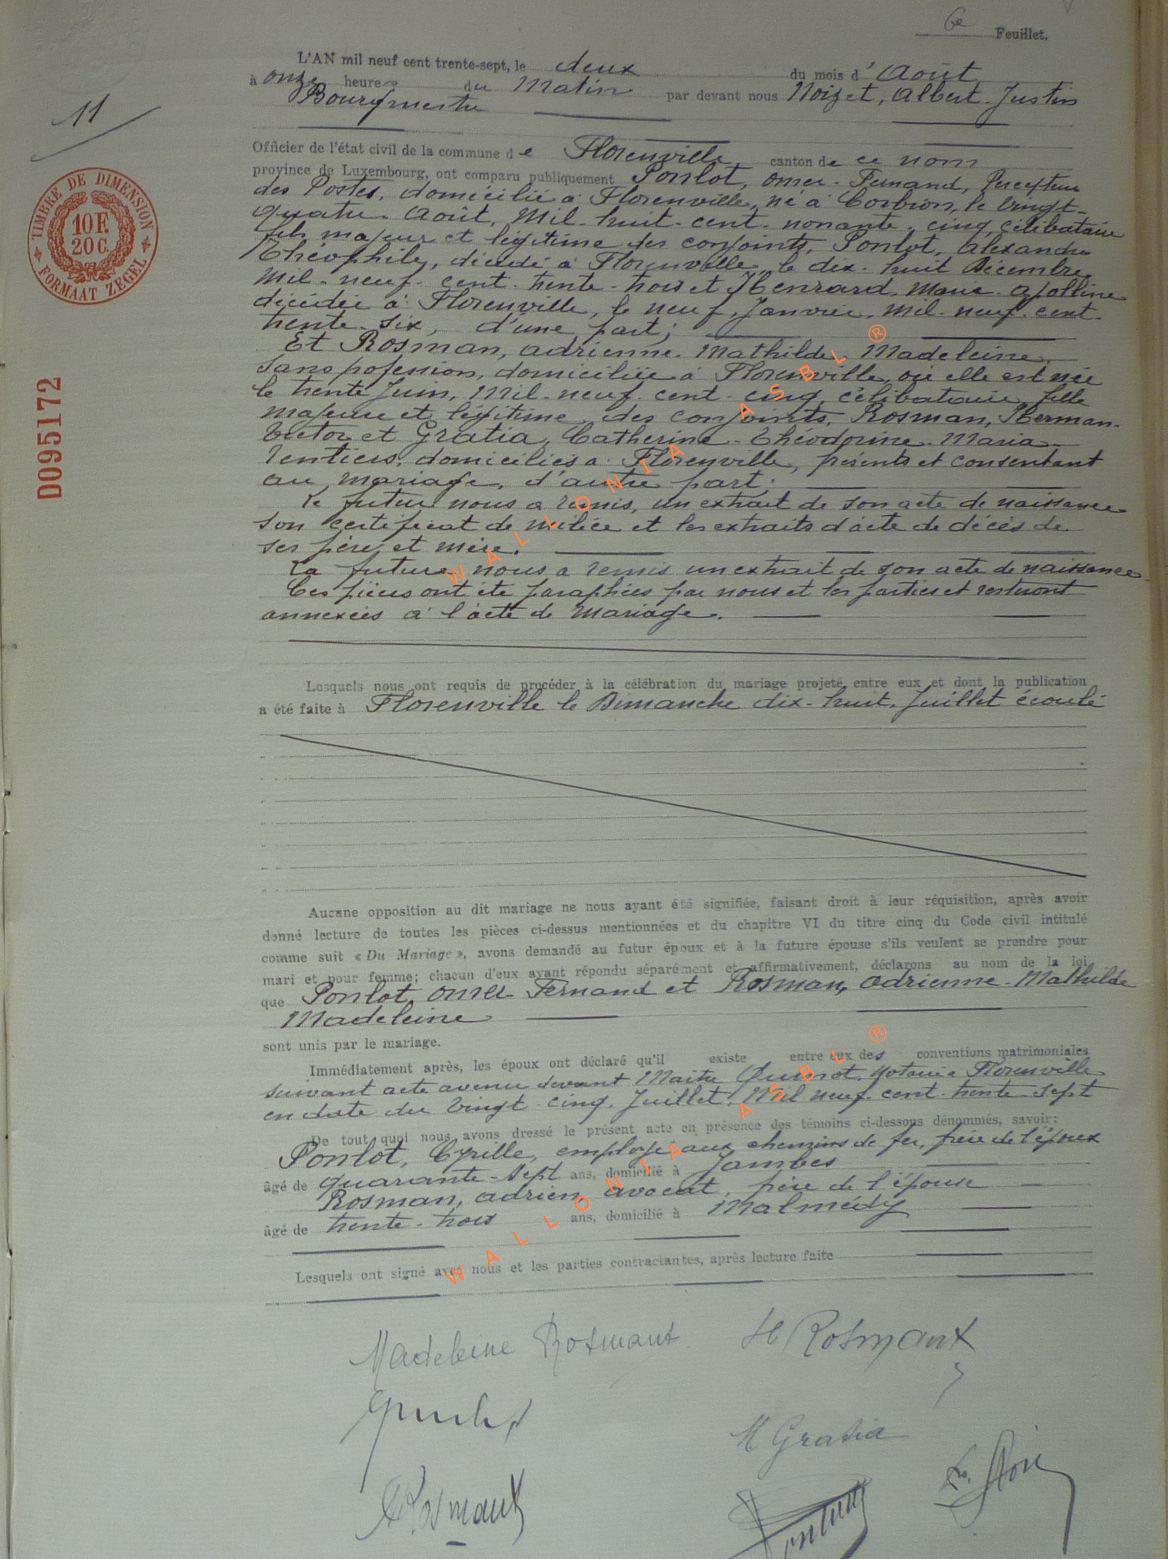 6e Feuillet.
L'AN mil neuf cent trente-sept, le deux du mois d'Août
à onze heures du Matin par devant nous Noizet, Albert-Justin
Bourgmestre
11
Officier de l'état civil de la commune de Florenville canton de ce nom
province de Luxembourg, ont comparu publiquement Ponlot, Omer-Fernand, Percepteur
des Postes, domicilié à Florenville, né à Corbion, le vingt-
quatre Août, Mil-huit-cent-nonante-cinq, célibataire
fils majeur et légitime des conjoints, Ponlot, Alexandre
Théophile, décédé à Florenville, le dix-huit Décembre
mil-neuf-cent-trente-trois et Henrard, Marie-Apolline
décédée à Florenville, le neuf, Janvier, mil-neuf-cent-
trente-six, d'une part;
Et Rosman, Adrienne-Mathilde-Madeleine,
sans profession, domiciliée à Florenville, où elle est née
le trente Juin, Mil-neuf-cent-cinq, célibataire, fille
majeure et légitime des conjoints, Rosman, Herman-
Victor et Gratia, Catherine-Théodorine-Maria
rentiers, domiciliés à Florenville, présents et consentant
au mariage, d'autre part;
Le futur nous a remis, un extrait de son acte de naissance
son certificat de milice et les extraits d'acte de décès de
ses père et mère.
La future nous a remis un extrait de son acte de naissance
Ces pièces ont été paraphées par nous et les parties et resteront
annexées à l'acte de Mariage.
Lesquels nous ont requis de procéder à la célébration du mariage projeté entre eux et dont la publication
a été faite à Florenville le Dimanche dix-huit Juillet écoulé
Aucune opposition au dit mariage ne nous ayant été signifiée, faisant droit à leur réquisition, après avoir
donné lecture de toutes les pièces ci-dessus mentionnées et du chapitre VI du titre cinq du Code civil intitulé
comme suit « Du Mariage », avons demandé au futur époux et à la future épouse s'ils veulent se prendre pour
mari et pour femme; chacun d'eux ayant répondu séparément et affirmativement, déclarons au nom de la loi
que Ponlot, Omer-Fernand et Rosman, Adrienne-Mathilde
Madeleine
sont unis par le mariage.
Immédiatement après, les époux ont déclaré qu'il existe entre eux des conventions matrimoniales
suivant acte avenu devant Maître notaire Florenville
en date du vingt-cinq, Juillet, Mil neuf-cent-trente-sept
De tout quoi nous avons dressé le présent acte en présence des témoins ci-dessous dénommés, savoir:
Ponlot, Cyrille, employé aux chemins de fer, frère de l'époux
âgé de quarante-sept ans, domicilié à Jambes
Rosman, Adrien, avocat, frère de l'épouse
âgé de trente-trois ans, domicilié à Malmédy
Lesquels ont signé avec nous et les parties contractantes, après lecture faite
Madeleine Rosmant H Rosmant
M Gratia
A Rosmant
TIMBRE DE DIMENSION
10 F.
20 C.
FORMAAT ZEGEL
D095172
WALLONIA ASBL ®
WALLONIA ASBL ®